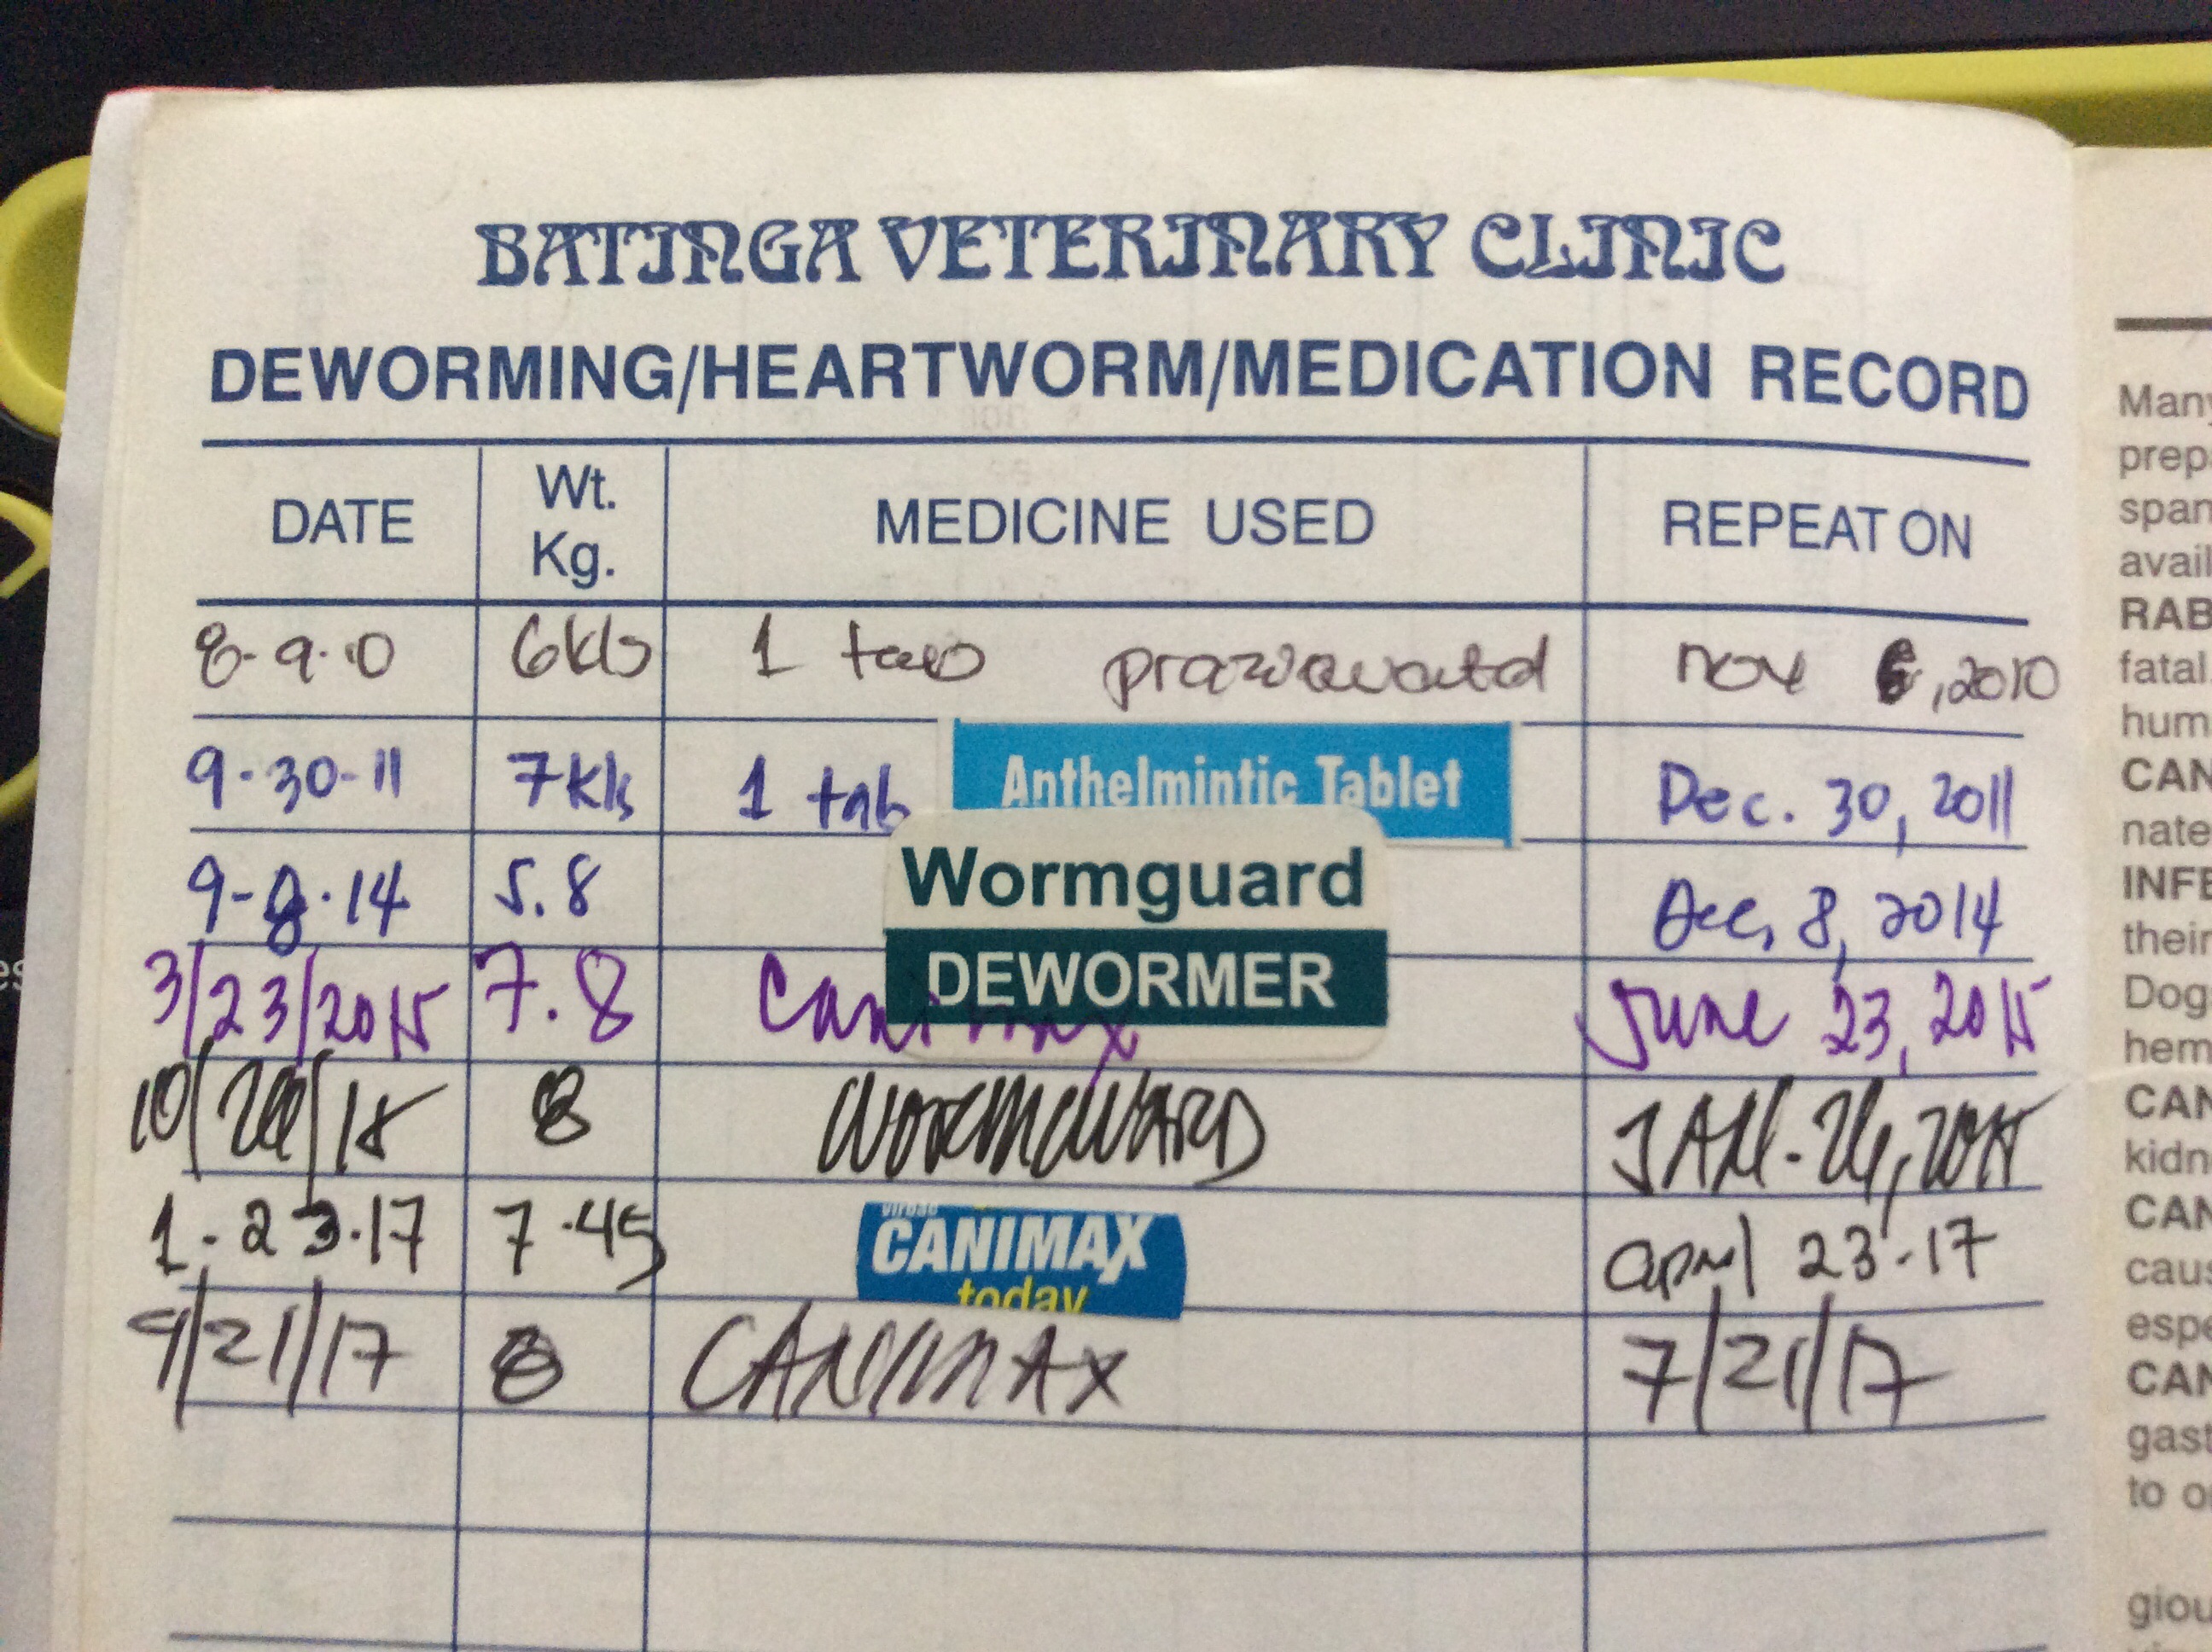 BATINGA VETERINARY CLINIC
DEWORMING/HEARTWORM/MEDICATION RECORD
DATE Wt. Kg. MEDICINE USED REPEAT ON
8-9-10 6kls 1 tab nov 6, 2010
9-30-11 7kls 1 tab Anthelmintic Tablet Dec. 30, 2011
9-8-14 5.8 Wormguard DEWORMER Dec. 8, 2014
3/23/2015 7.8 Canimax June 23, 2015
10/ /15 8 WORMGUARD JAN. 26, 2015
1-23-17 7.45 virbac CANIMAX today april 23-17
21/17 8 CANIMAX 7/21/17
Many
prep
span
avail
RAB
fatal.
hum
CAN
nate
INFE
their
Dog
hem
CAN
kidn
CAN
caus
espe
CAN
gast
to o
giou